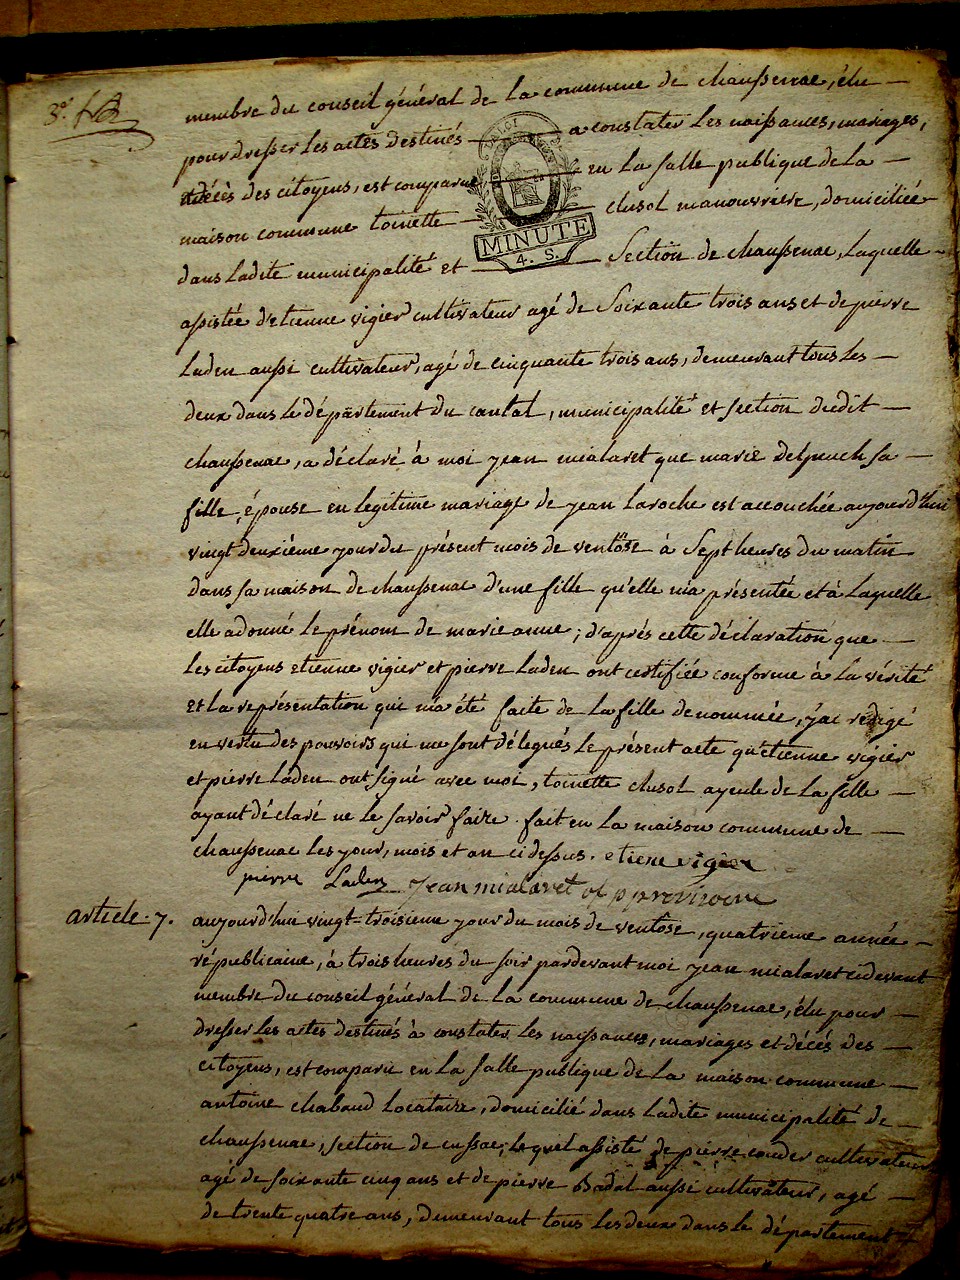 3e.
membre du conseil général de la commune de chaussenac, élu
pour dresser les actes destinés a constater les naissances, mariages,
et décès des citoyens, est comparue en la salle publique de la
maison commune toinette clusol manouvriere, domiciliée
dans ladite municipalité et Section de chaussenac, Laquelle
LA LOI
MINUTE
4. S.
assistée d'etienne vigier cultivateur agé de Soixante trois ans et de pierre
Laden aussi cultivateur, agé de cinquante trois ans, demeurant tous les
deux dans le département du cantal, municipalité et section dudit
chaussenac, a déclaré à moi jean mialaret que marie delpeuch sa
fille, épouse en legitime mariage de jean Laroche est accouchée aujourd'hui
vingt deuxième jour du présent mois de ventôse à Sept heures du matin
dans sa maison de chaussenac d'une fille qu'elle m'a présentée et à Laquelle
elle a donné le prénom de marie anne; d'après cette déclaration que
les citoyens etienne vigier et pierre Laden ont certifiée conforme à la vérité
et la représentation qui m'a été faite de la fille denommée, j'ai rédigé
en vertu des pouvoirs qui me sont délegués le présent acte qu'etienne vigier
et pierre Laden ont signé avec moi, toinette clusol ayeule de la fille
ayant déclaré ne le savoir faire. fait en la maison commune de
chaussenac les jour, mois et an ci dessus. etiene vigier
pierre Laden Jean mialaret
article 7. aujourd'hui vingt=troisieme jour du mois de ventose, quatrieme année
républicaine, à trois heures du soir pardevant moi jean mialaret cidevant
membre du conseil général de la commune de chaussenac, élu pour
dresser les actes destinés à constater les naissances, mariages et décés des
citoyens, est comparu en la salle publique de la maison commune
antoine chabaud Locataire, domicilié dans ladite municipalité de
chaussenac, section de cussac, lequel assisté de pierre couder cultivateur
agé de soixante cinq ans et de pierre Badal aussi cultivateur, agé
de trente quatre ans, demeurant tous les deux dans le département